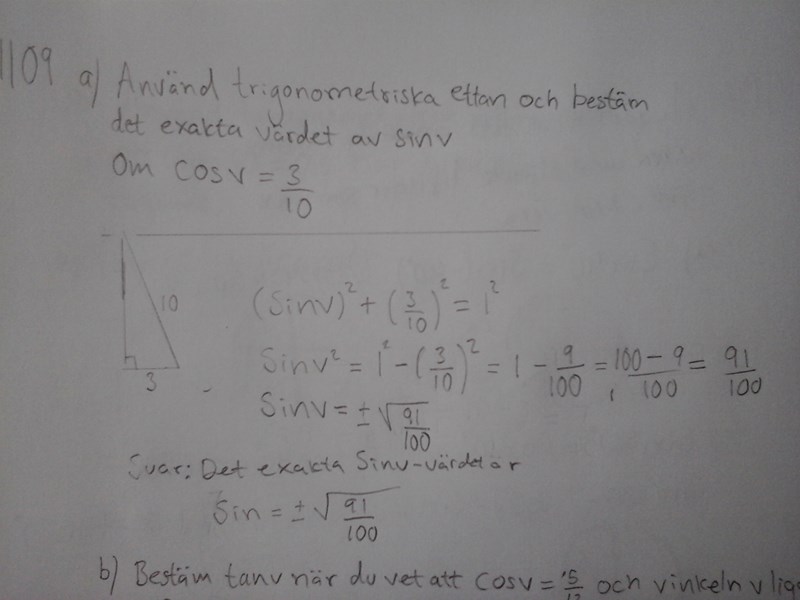 1109 a) Använd trigonometriska ettan och bestäm
det exakta värdet av sinv
Om cosv = 3/10
10
3
(Sinv)² + (3/10)² = 1²
Sinv² = 1² - (3/10)² = 1 - 9/100 = 100-9/100 = 91/100
Sinv = ±√91/100
Svar: Det exakta Sinv-värdet är
Sin = ±√91/100
b) Bestäm tanv när du vet att cosv = 5/13 och vinkeln v